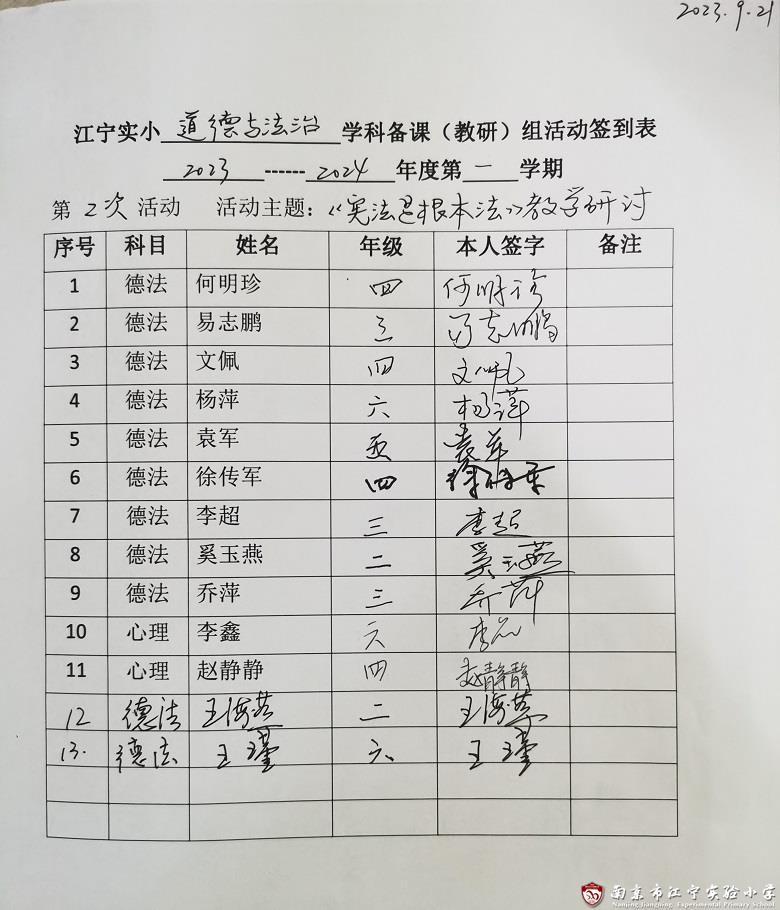 2023.9.21
江宁实小 道德与法治 学科备课（教研）组活动签到表
2023 ------ 2024 年度第 一 学期
第 2次 活动 活动主题：《宪法是根本法》教学研讨
序号 科目 姓名 年级 本人签字 备注
1 德法 何明珍 四 何明珍
2 德法 易志鹏 三 易志鹏
3 德法 文佩 四 文佩
4 德法 杨萍 六 杨萍
5 德法 袁军 五 袁军
6 德法 徐传军 四 徐传军
7 德法 李超 三 李超
8 德法 奚玉燕 二 奚玉燕
9 德法 乔萍 三 乔萍
10 心理 李鑫 六 李鑫
11 心理 赵静静 四 赵静静
12 德法 王海燕 二 王海燕
13. 德法 王瑾 六 王瑾
南京市江宁实验小学
Nanjing Jiangning Experimental Primary School